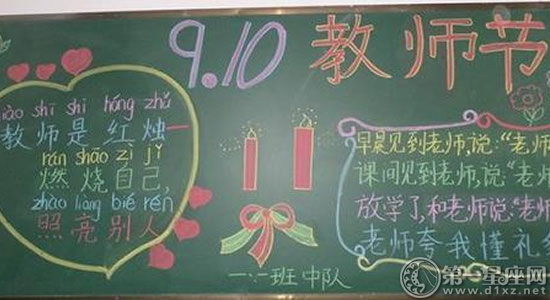 9.10 教师节
iào shī shì hóng zhú
教师是红烛
rán shāo zì jǐ
燃烧自己,
zhào liàng bié rén
照亮别人
一·一班中队
早晨见到老师,说:"老师
课间见到老师,说:"老师
放学了,和老师说:"老师
老师夸我懂礼
第一星座网
www.d1xz.net